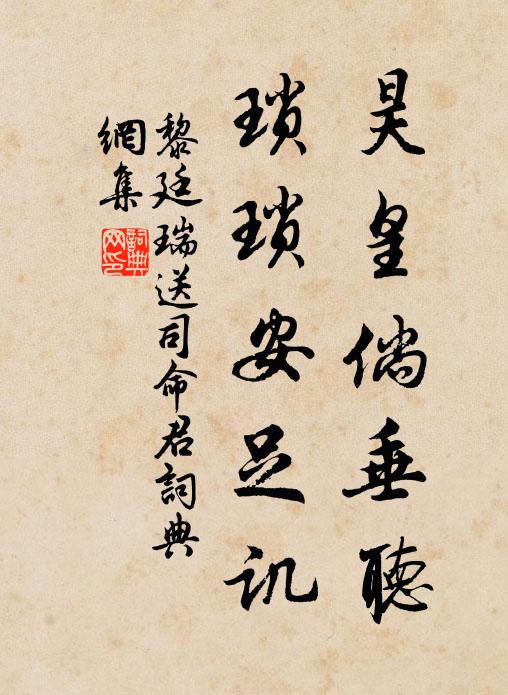 昊皇倘垂聽
瑣瑣安足訊
黎廷瑞送司命君詞典
網集
詞典網印